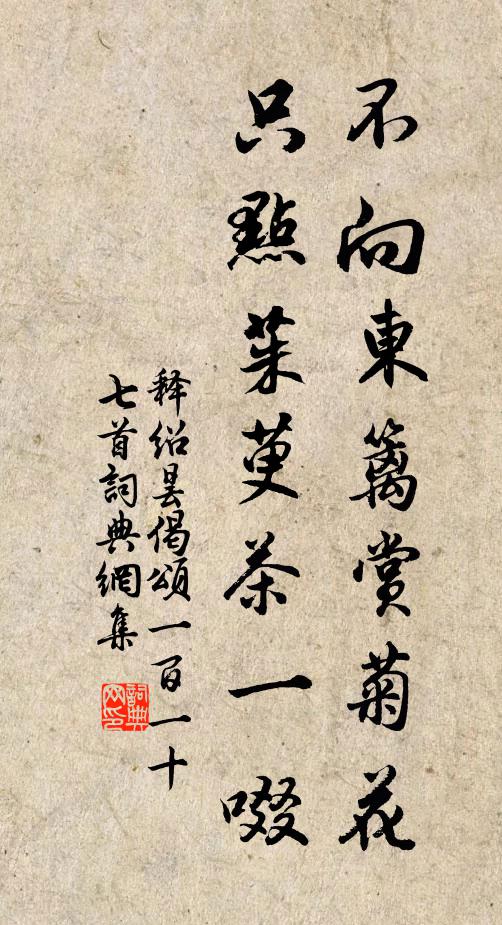 不向東籬賞菊花
只點茱萸茶一啜
释紹曇偈頌一百一十
七首詞典網集
詞典网印